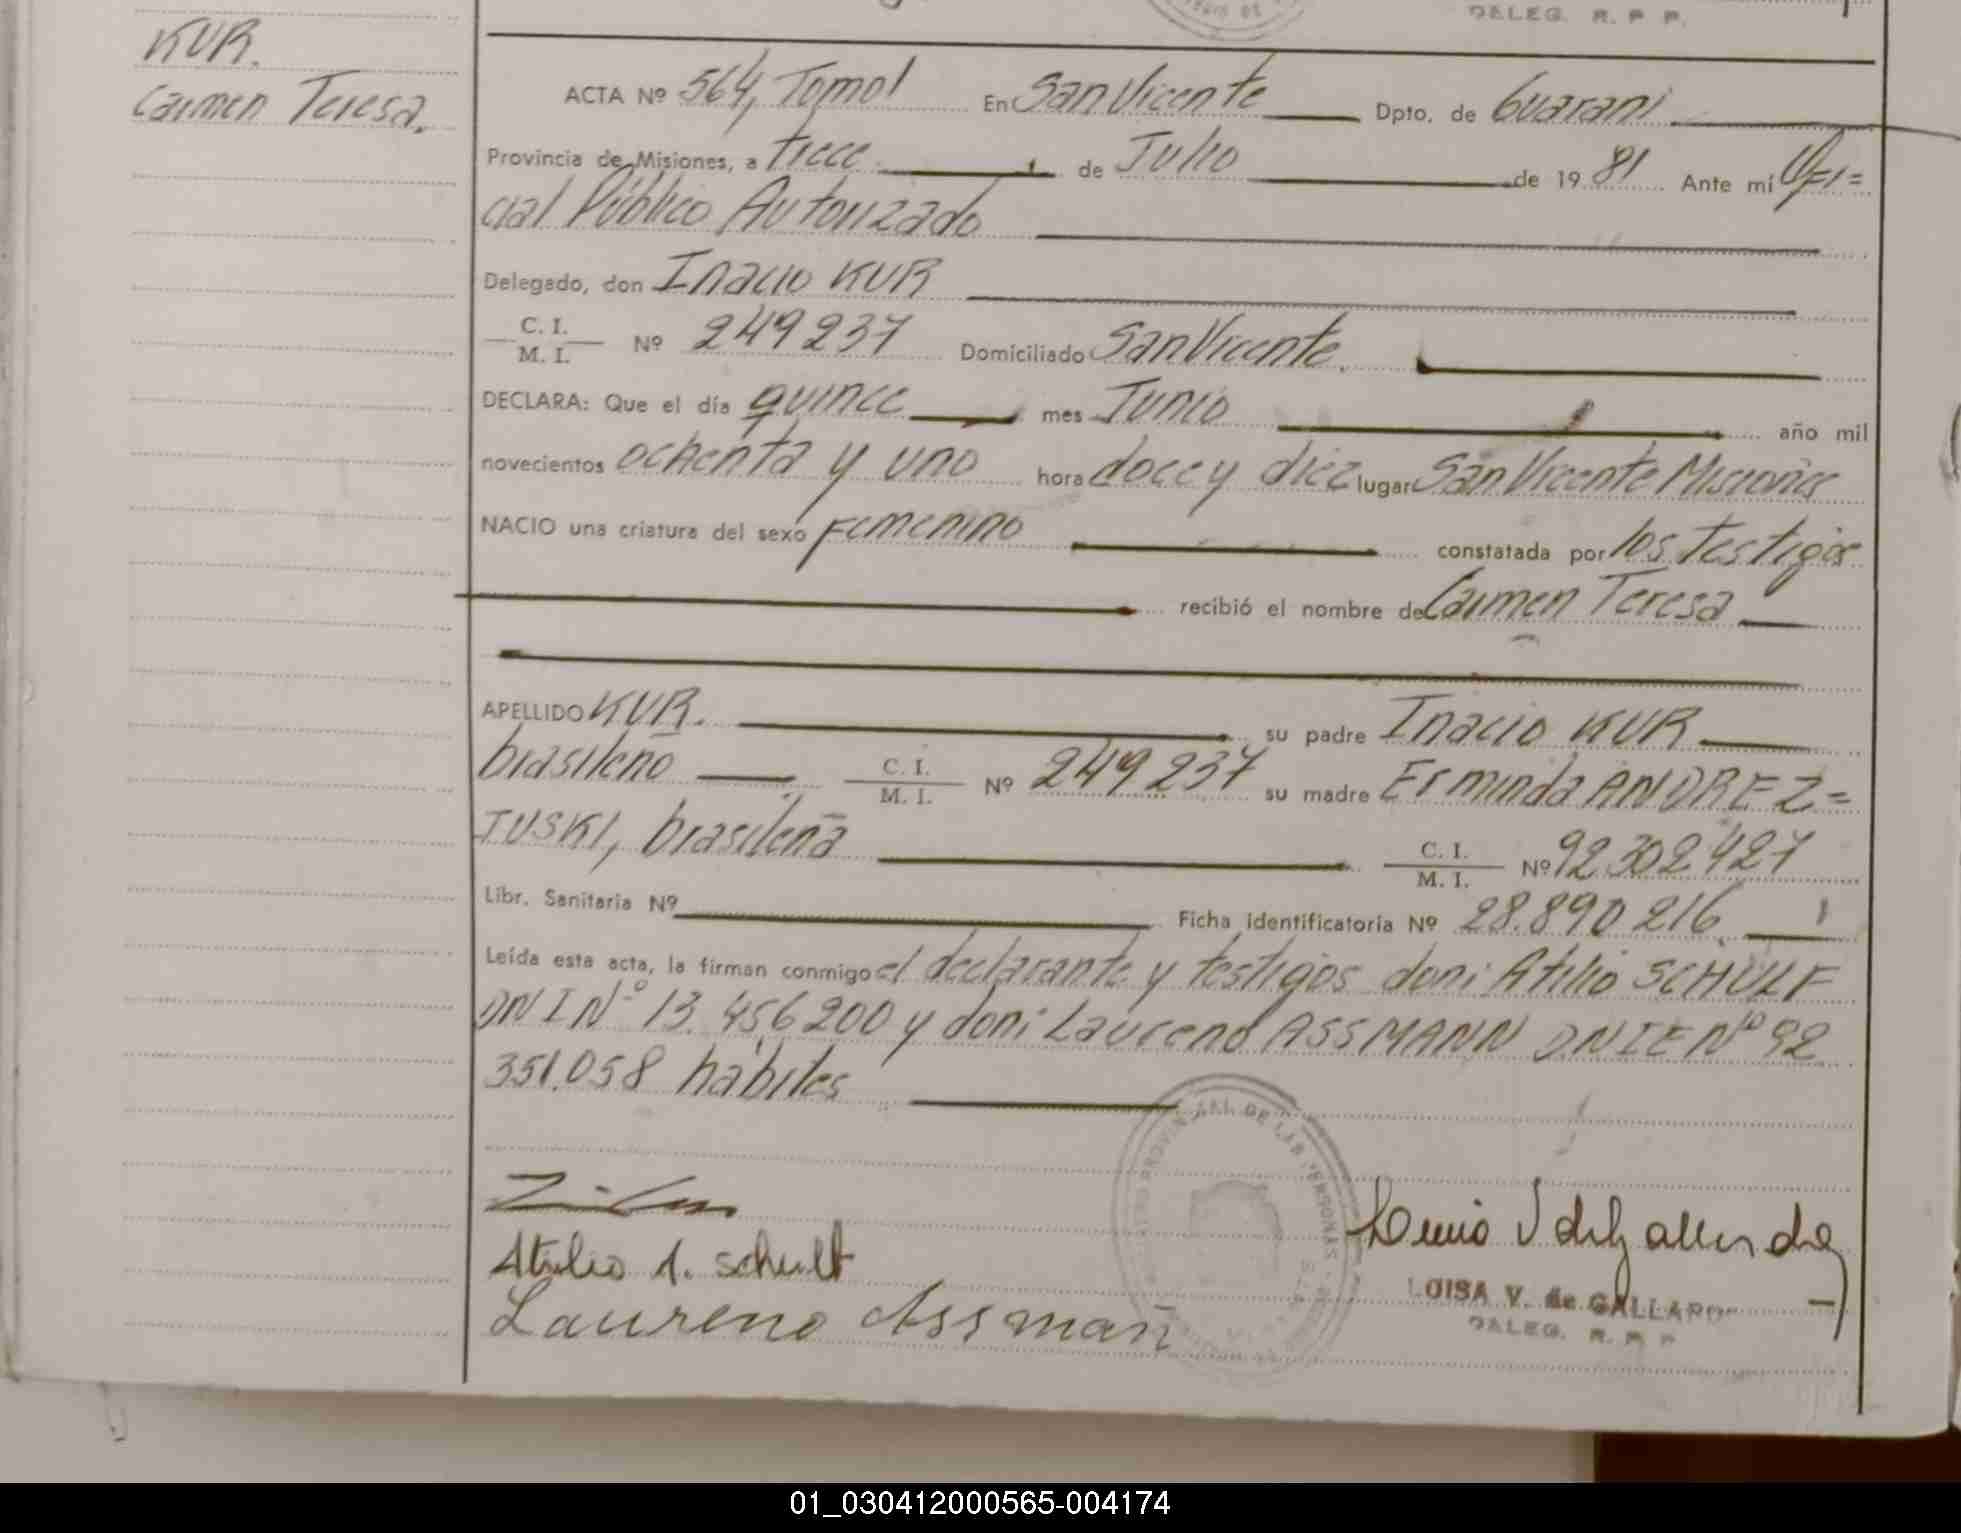 KUR.
Carmen Teresa.
DELEG. R. P. P.
ACTA Nº 564, Tomo I En San Vicente Dpto. de Guarani
Provincia de Misiones, a trece de Julio de 19 81 Ante mí Ofi=
cial Público Autorizado
Delegado, don Inacio KUR
C. I.
M. I. Nº 249237 Domiciliado San Vicente.
DECLARA: Que el día quince mes Junio año mil
novecientos ochenta y uno hora doce y diez lugar San Vicente Misiones
NACIO una criatura del sexo Femenino constatada por los testigos
recibió el nombre de Carmen Teresa
APELLIDO KUR. su padre Inacio KUR
brasileño C. I. M. I. Nº 249237 su madre Erminda ANDREZ=
JUSKI, brasileña C. I. M. I. Nº 92302427
Libr. Sanitaria Nº Ficha identificatoria Nº 28.890216
Leída esta acta, la firman conmigo el declarante y testigos don: Atilio SCHULF
DNI Nº 13.456200 y don: Laureno ASSMANN DNIE Nº 92
351.058 hábiles
Atilio A. Schult
Laureno Assmañ
LUISA V. de GALLARDO
DELEG. R. P. P.
01_030412000565-004174